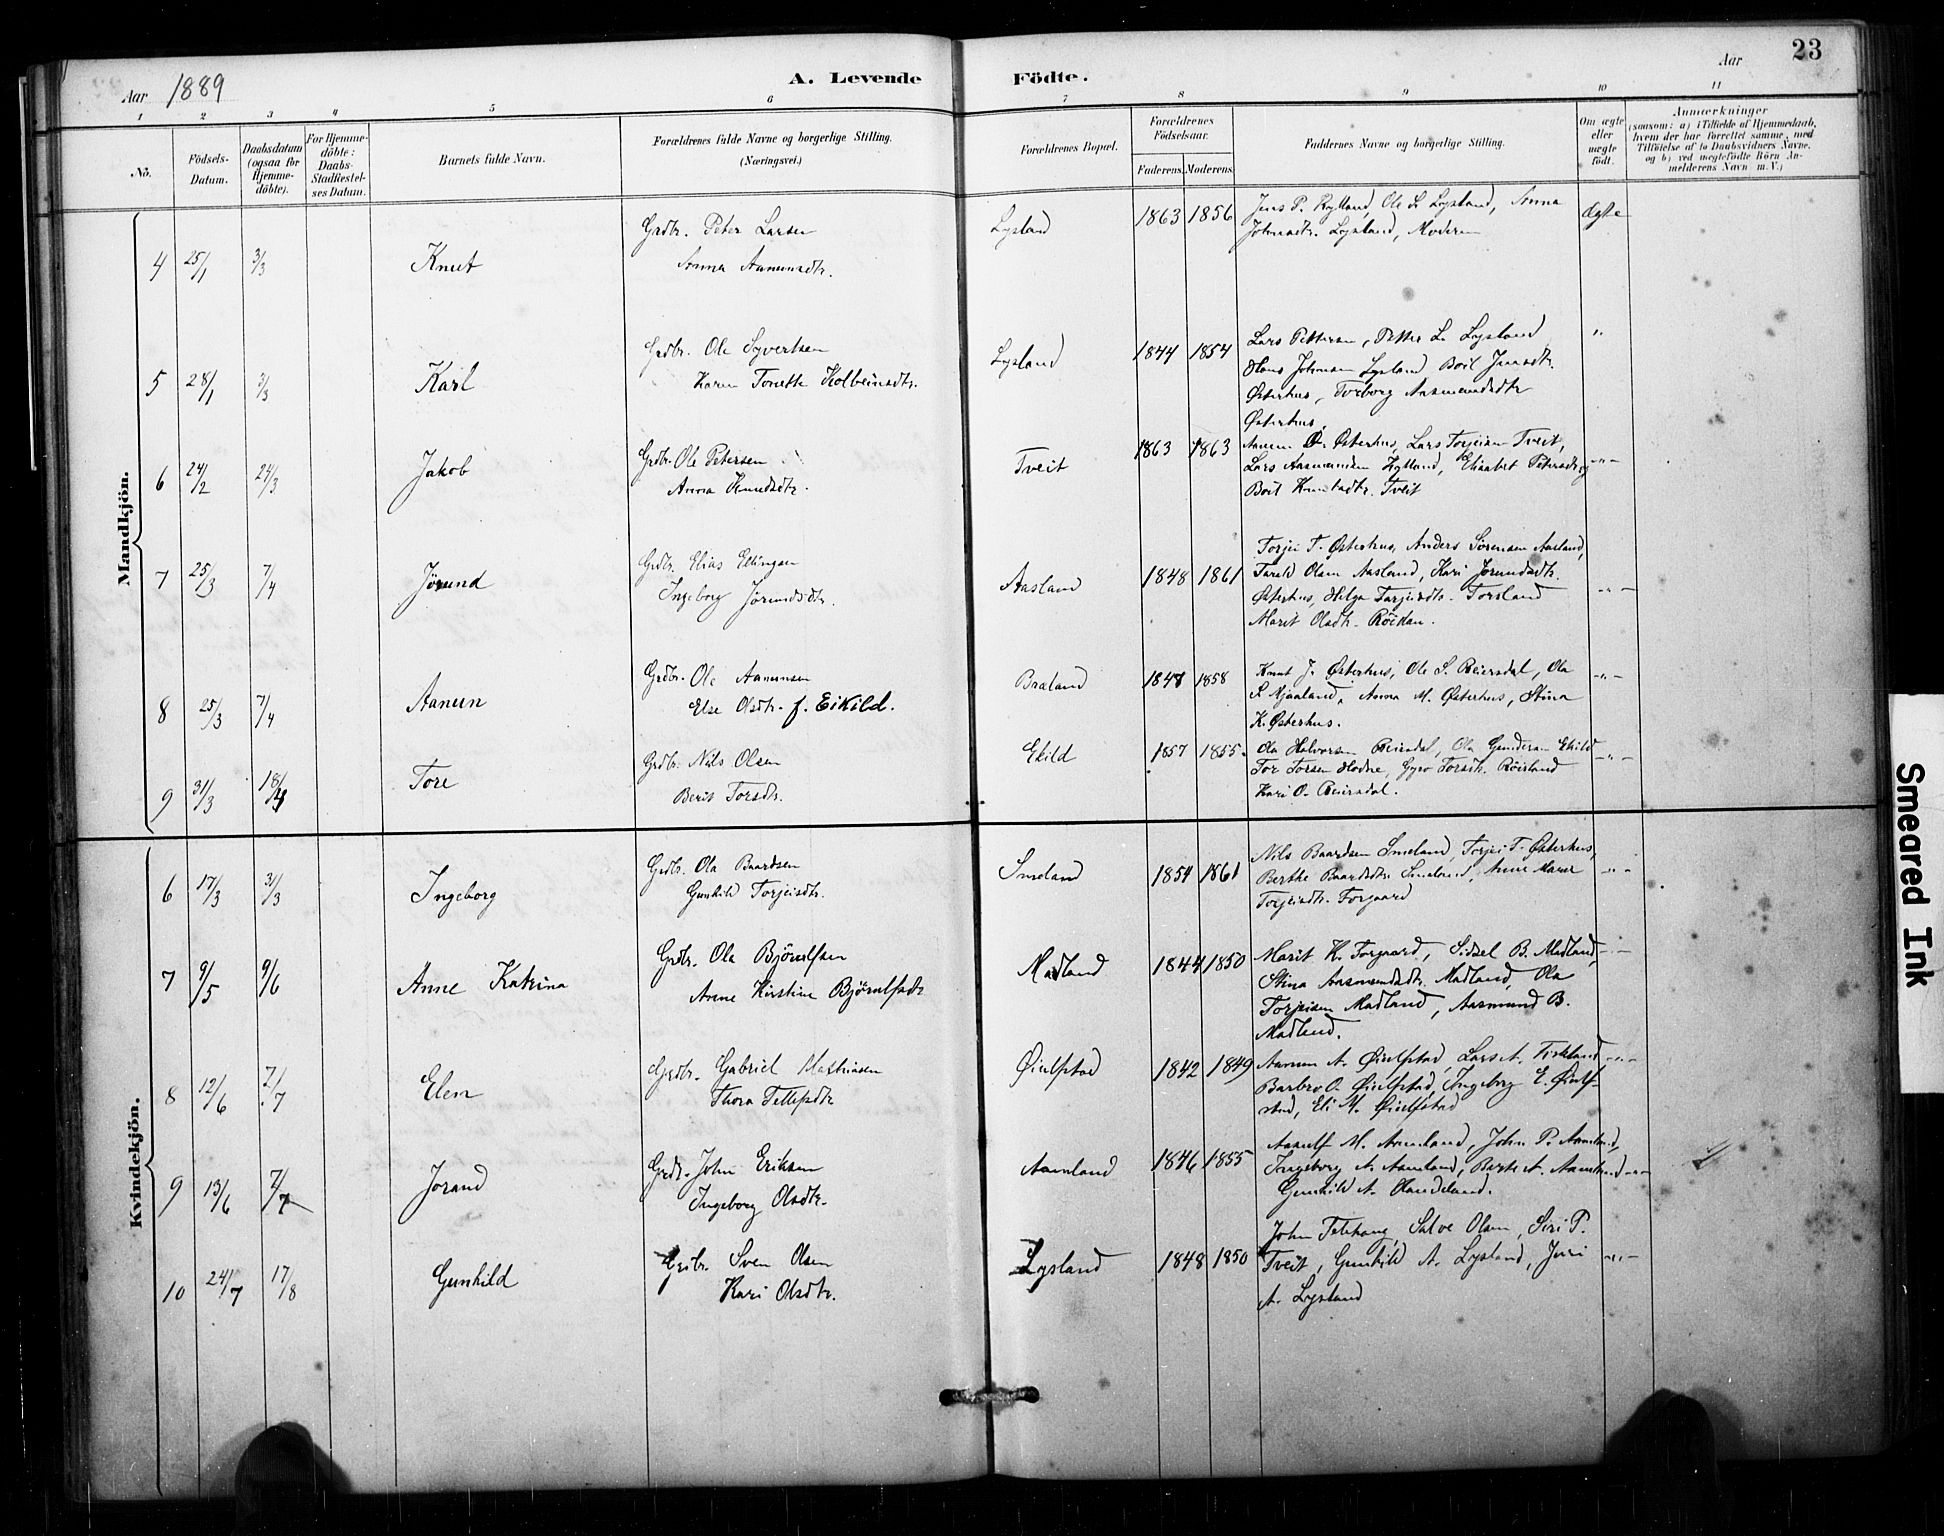 23
Aar 1889
A. Levende Födte.
Aar
1 2 3 4 5 6 7 8 9 10 11
No.
Födsels-Datum.
Daabsdatum (ogsaa for Hjemme-döbte).
For Hjemme-döbte: Daabs-Stadfæstel-ses Datum.
Barnets fulde Navn.
Forældrenes fulde Navne og borgerlige Stilling. (Næringsvei.)
Forældrenes Bopæl.
Forældrenes Födselsaar.
Faderens. Moderens.
Faddernes Navne og borgerlige Stilling.
Om ægte eller uægte födt.
Anmærkninger
(saasom: a) i Tilfælde af Hjemmedaab,
hvem der har forrettet samme, med
Tilföielse af to Daabsvidners Navne,
og b) ved uægtefödte Börn An-
melderens Navn m. V.)
Mandkjön.
4 25/1 3/3 Knut
Grdbr. Peter Larsen
Anna Aanunsdtr.
Lysland 1863 1856
Jens P. Kylland, Ole L. Lysland, Anna
Johnsdtr. Lysland, Moderen
Ægte
5 28/1 3/3 Karl
Grdbr. Ole Syvertsen
Karen Tonette Kolbeinsdtr.
Lysland 1844 1854
Lars Pettersen, Petter L. Lysland
Hans Johnsen Lysland Boil Jensdtr.
Østerhus, Torborg Aasmundsdtr
Østerhus.
"
6 24/2 24/3 Jakob
Grdbr. Ole Petersen
Anna Knudsdtr.
Tveit 1863 1863
Aanen O. Østerhus, Lars Torjeisen Tveit,
Lars Aasmundsen Kylland, Elisabet Petersdtr og
Boil Knutsdtr. Tveit
-"-
7 25/3 7/4 Jörund
Grdbr. Elias Ellingsen
Ingeborg Jörundsdtr.
Aasland 1848 1861
Torjei T. Østerhus, Anders Sörensen Aasland,
Tarald Olsen Aasland, Kari Jörundsdtr.
Østerhus, Helga Tarjeisdtr. Torsland
Marit Olsdtr.
-"-
8 25/3 7/4 Aanen
Grdbr. Ole Aanunsen
Else Olsdtr. f. Eikild.
Bræland 1848 1858
Knut J. Østerhus, Ole S. Reiersdal, Ola
S. Mjaaland, Anna M. Østerhus, Stina
K. Østerhus.
-"-
9 31/3 18/4 Tore
Grdbr. Nils Olsen
Berit Torsdtr.
Ekild 1857 1855
Ola Halvorsen Reiersdal, Ola Gundersen Ekild
Tor Torsen Hodne, Gyro Torsdtr. Röisland
Kari O. Reiersdal.
-"-
Kvindekjön.
6 17/3 31/3 Ingeborg
Grdbr. Ola Baardsen
Gunhild Torjeisdtr.
Smeland 1854 1861
Nils Baardsen Smeland, Torjei T. Østerhus,
Berthe Baardsdtr. Smeland, Anne Maria
Torjeisdtr. Forgaard
-"-
7 9/5 9/6 Anne Katrina
Grdbr. Ola Björnulfsen
Anne Kirstine Björnulfsdtr
Madland 1844 1850
Marit K. Forgaard, Sidsel B. Madland,
Stina Aasmundsdtr. Madland, Ola
Torjeisen Madland, Aasmund B.
Madland.
-"-
8 12/6 7/7 Elen
Grdbr. Gabriel Mathiasen
Thora Tellefsdtr
Øiulfstad 1842 1849
Aanun A. Øiulfstad, Lars A.
Barbro O. Øiulfstad, Ingeborg E. Øiulf-
stad, Eli M. Øiulfstad
-"-
9 13/6 7/7 Jorand
Grdbr. John Eriksen
Ingeborg Olsdtr.
Aamland 1846 1855
Asulf M. Aamland, John P. Aamland,
Ingeborg A. Aamland, Berte A. Aamland
Gunhild A.
-"-
10 24/7 17/8 Gunhild
Grdbr. Sven Olsen
Kari Olsdtr.
Lysland 1848 1850
John Telehaug, Salve Olsen, Siri P.
Tveit, Gunhild A. Lysland, Juri
A. Lysland
-"-
Smeared Ink